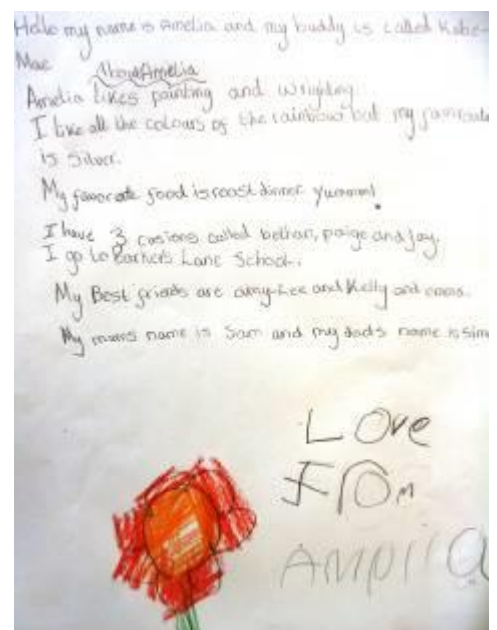 Hello my name is Amelia and my buddy is called Kobe-
Mae
About Amelia
Amelia likes painting and wrighting
I like all the colours of the rainbow but my
is silver.
My food is roast dinner yummm!
I have 3 cusions called bethan, paige and jay.
I go to Barkers Lane School.
My Best friends are amy-Lee and Kelly and
My mums name is Sam and my dads name is sim
LOve
From
Amelia